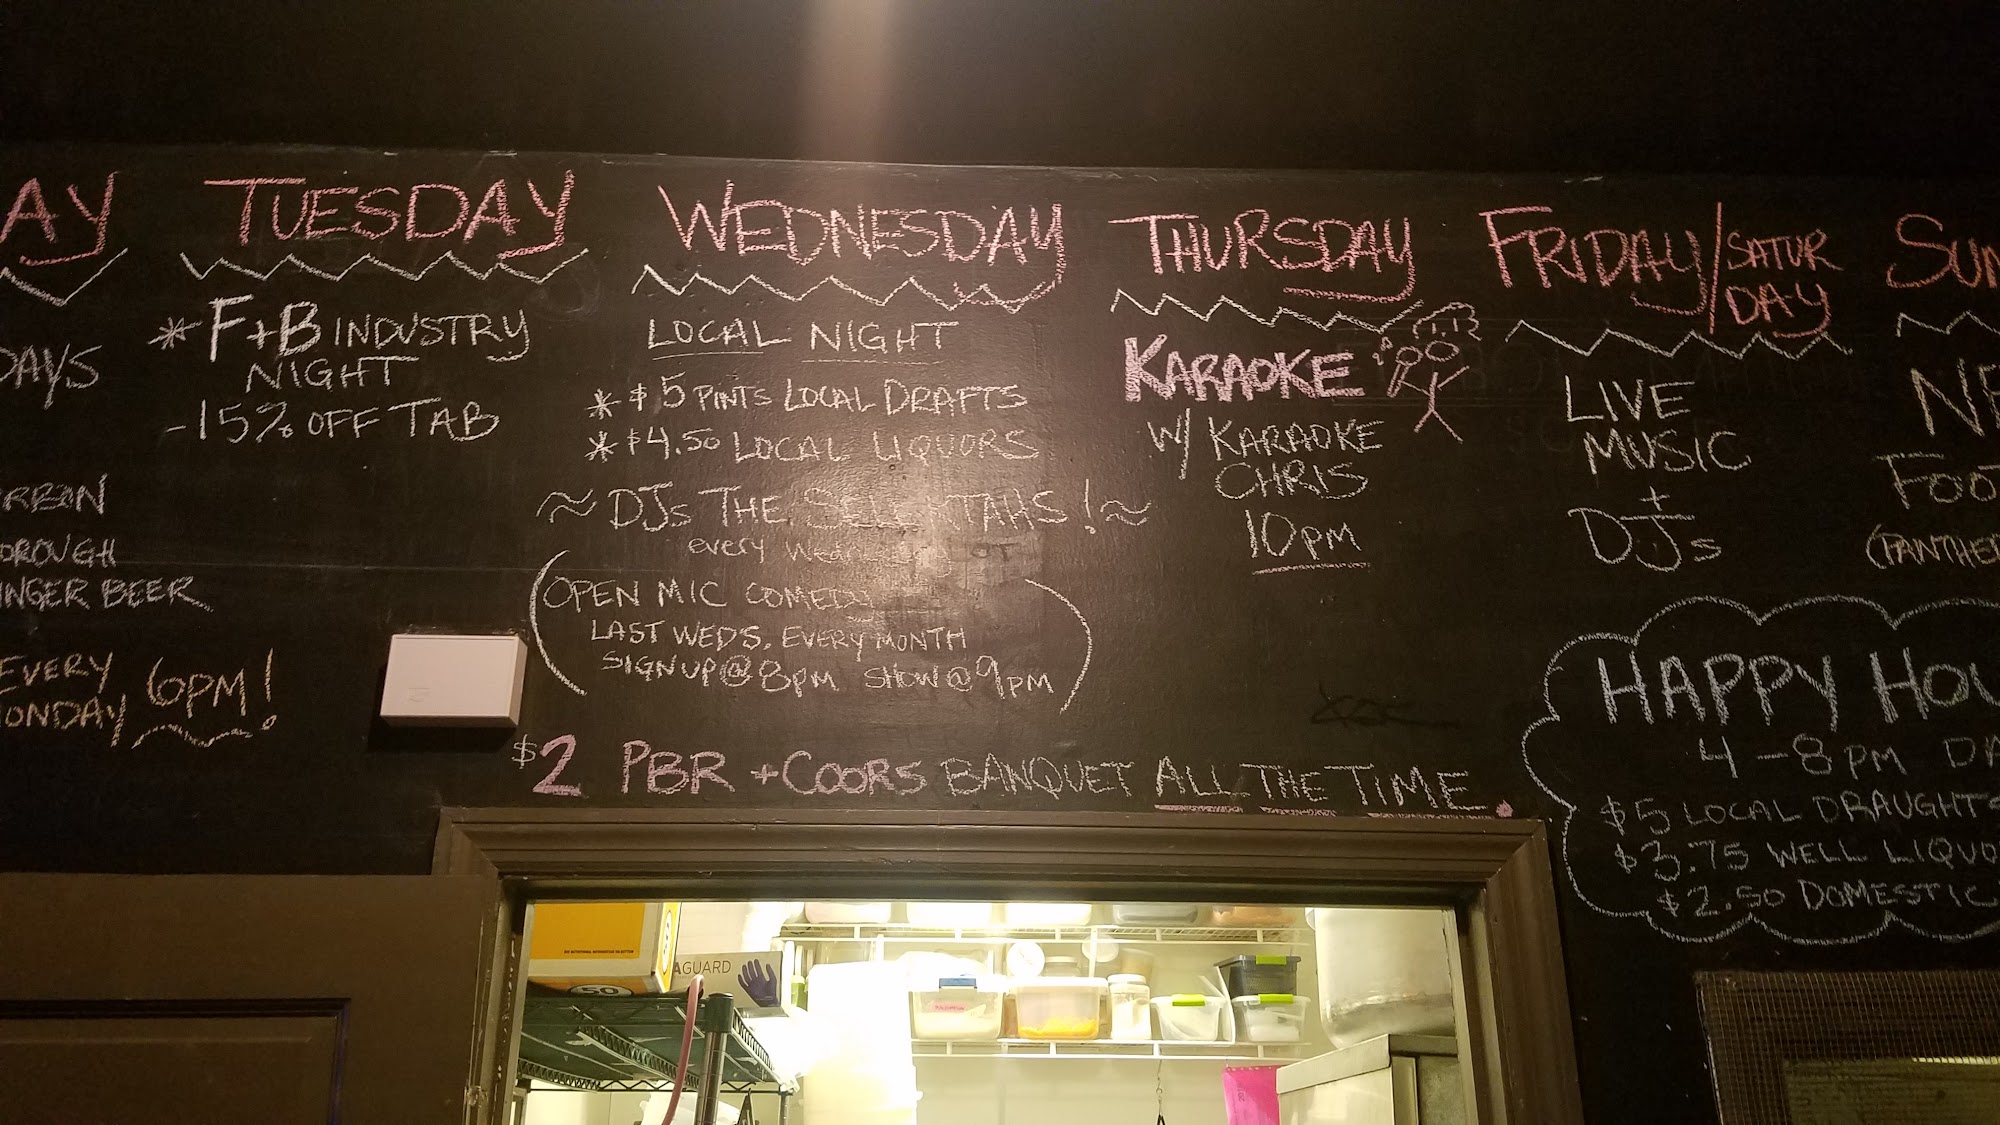 AY
DAYS
RBON
OROUGH
INGER BEER
EVERY
ONDAY 6PM!
TUESDAY
* F+B INDUSTRY
NIGHT
-15% OFF TAB
WEDNESDAY
LOCAL NIGHT
* $5 PINTS LOCAL DRAFTS
* $4.50 LOCAL LIQUORS
~ DJs THE SELEKTAHS! ~
every Wednesday
(OPEN MIC COMEDY
LAST WEDS. EVERY MONTH
SIGN UP @ 8PM SHOW @ 9PM)
THURSDAY
KARAOKE
W/ KARAOKE
CHRIS
10PM
FRIDAY/SATUR
DAY
LIVE
MUSIC
+
DJs
SUN
NF
FOOT
(PANTHE
HAPPY HOU
4-8PM DA
$5 LOCAL DRAUGHTS
$3.75 WELL LIQUO
$2.50 DOMESTIC
$2 PBR + COORS BANQUET ALL THE TIME.
AGUARD
50